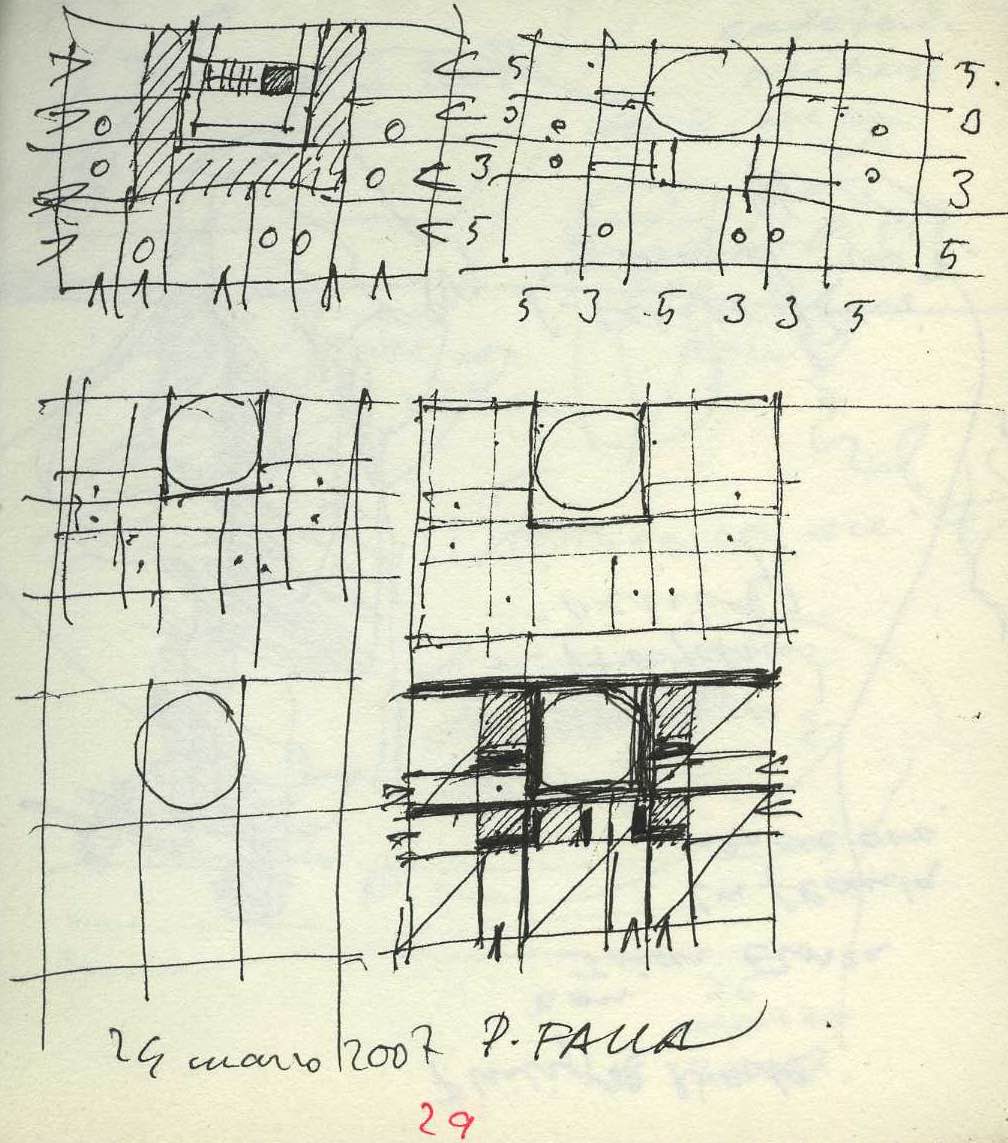 5 5
3 3
5 5
5 3 5 3 3 5
29 marzo 2007 P. FALLA
29